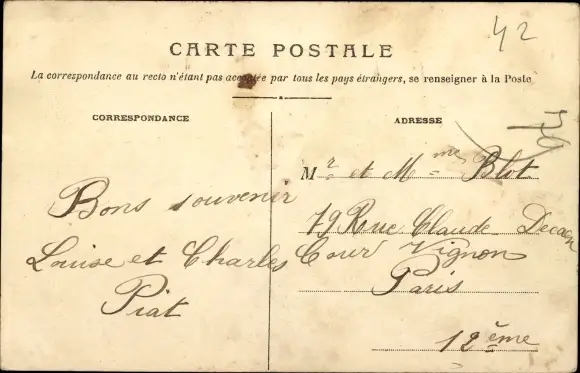 42
CARTE POSTALE
La correspondance au recto n'étant pas acceptée par tous les pays étrangers, se renseigner à la Poste
CORRESPONDANCE
ADRESSE
Bons souvenir
Louise et Charles
Piat
Mr et Mme Blot
79 Rue Claude Decaen
Cour Vignon
Paris
12ème